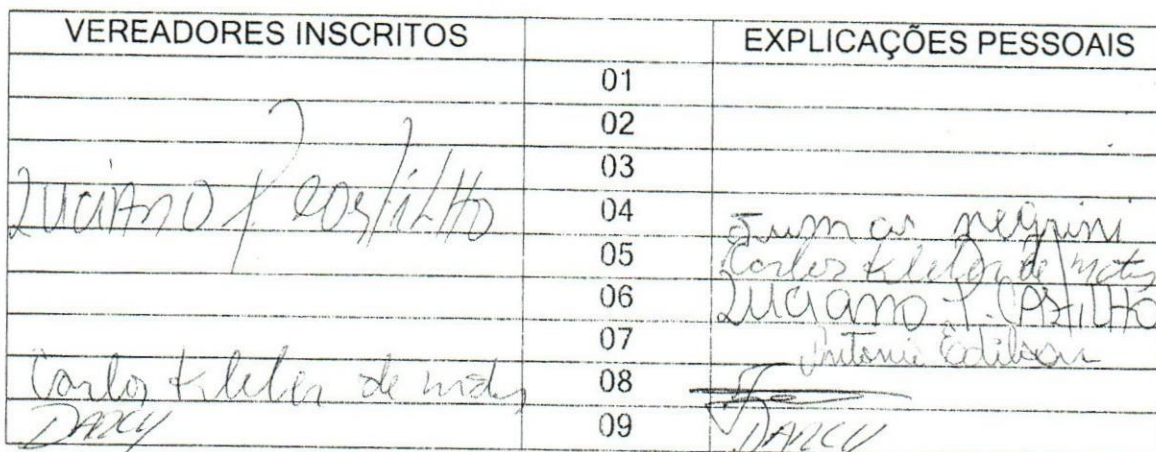 VEREADORES INSCRITOS EXPLICAÇÕES PESSOAIS
01
02
03
Luciano P. Costilho 04 negrini
05 Carlos Kleber de
06 Luciano P. Castilho
07 Antonio
Carlos Kleber de 08
Darcy 09 Darcy